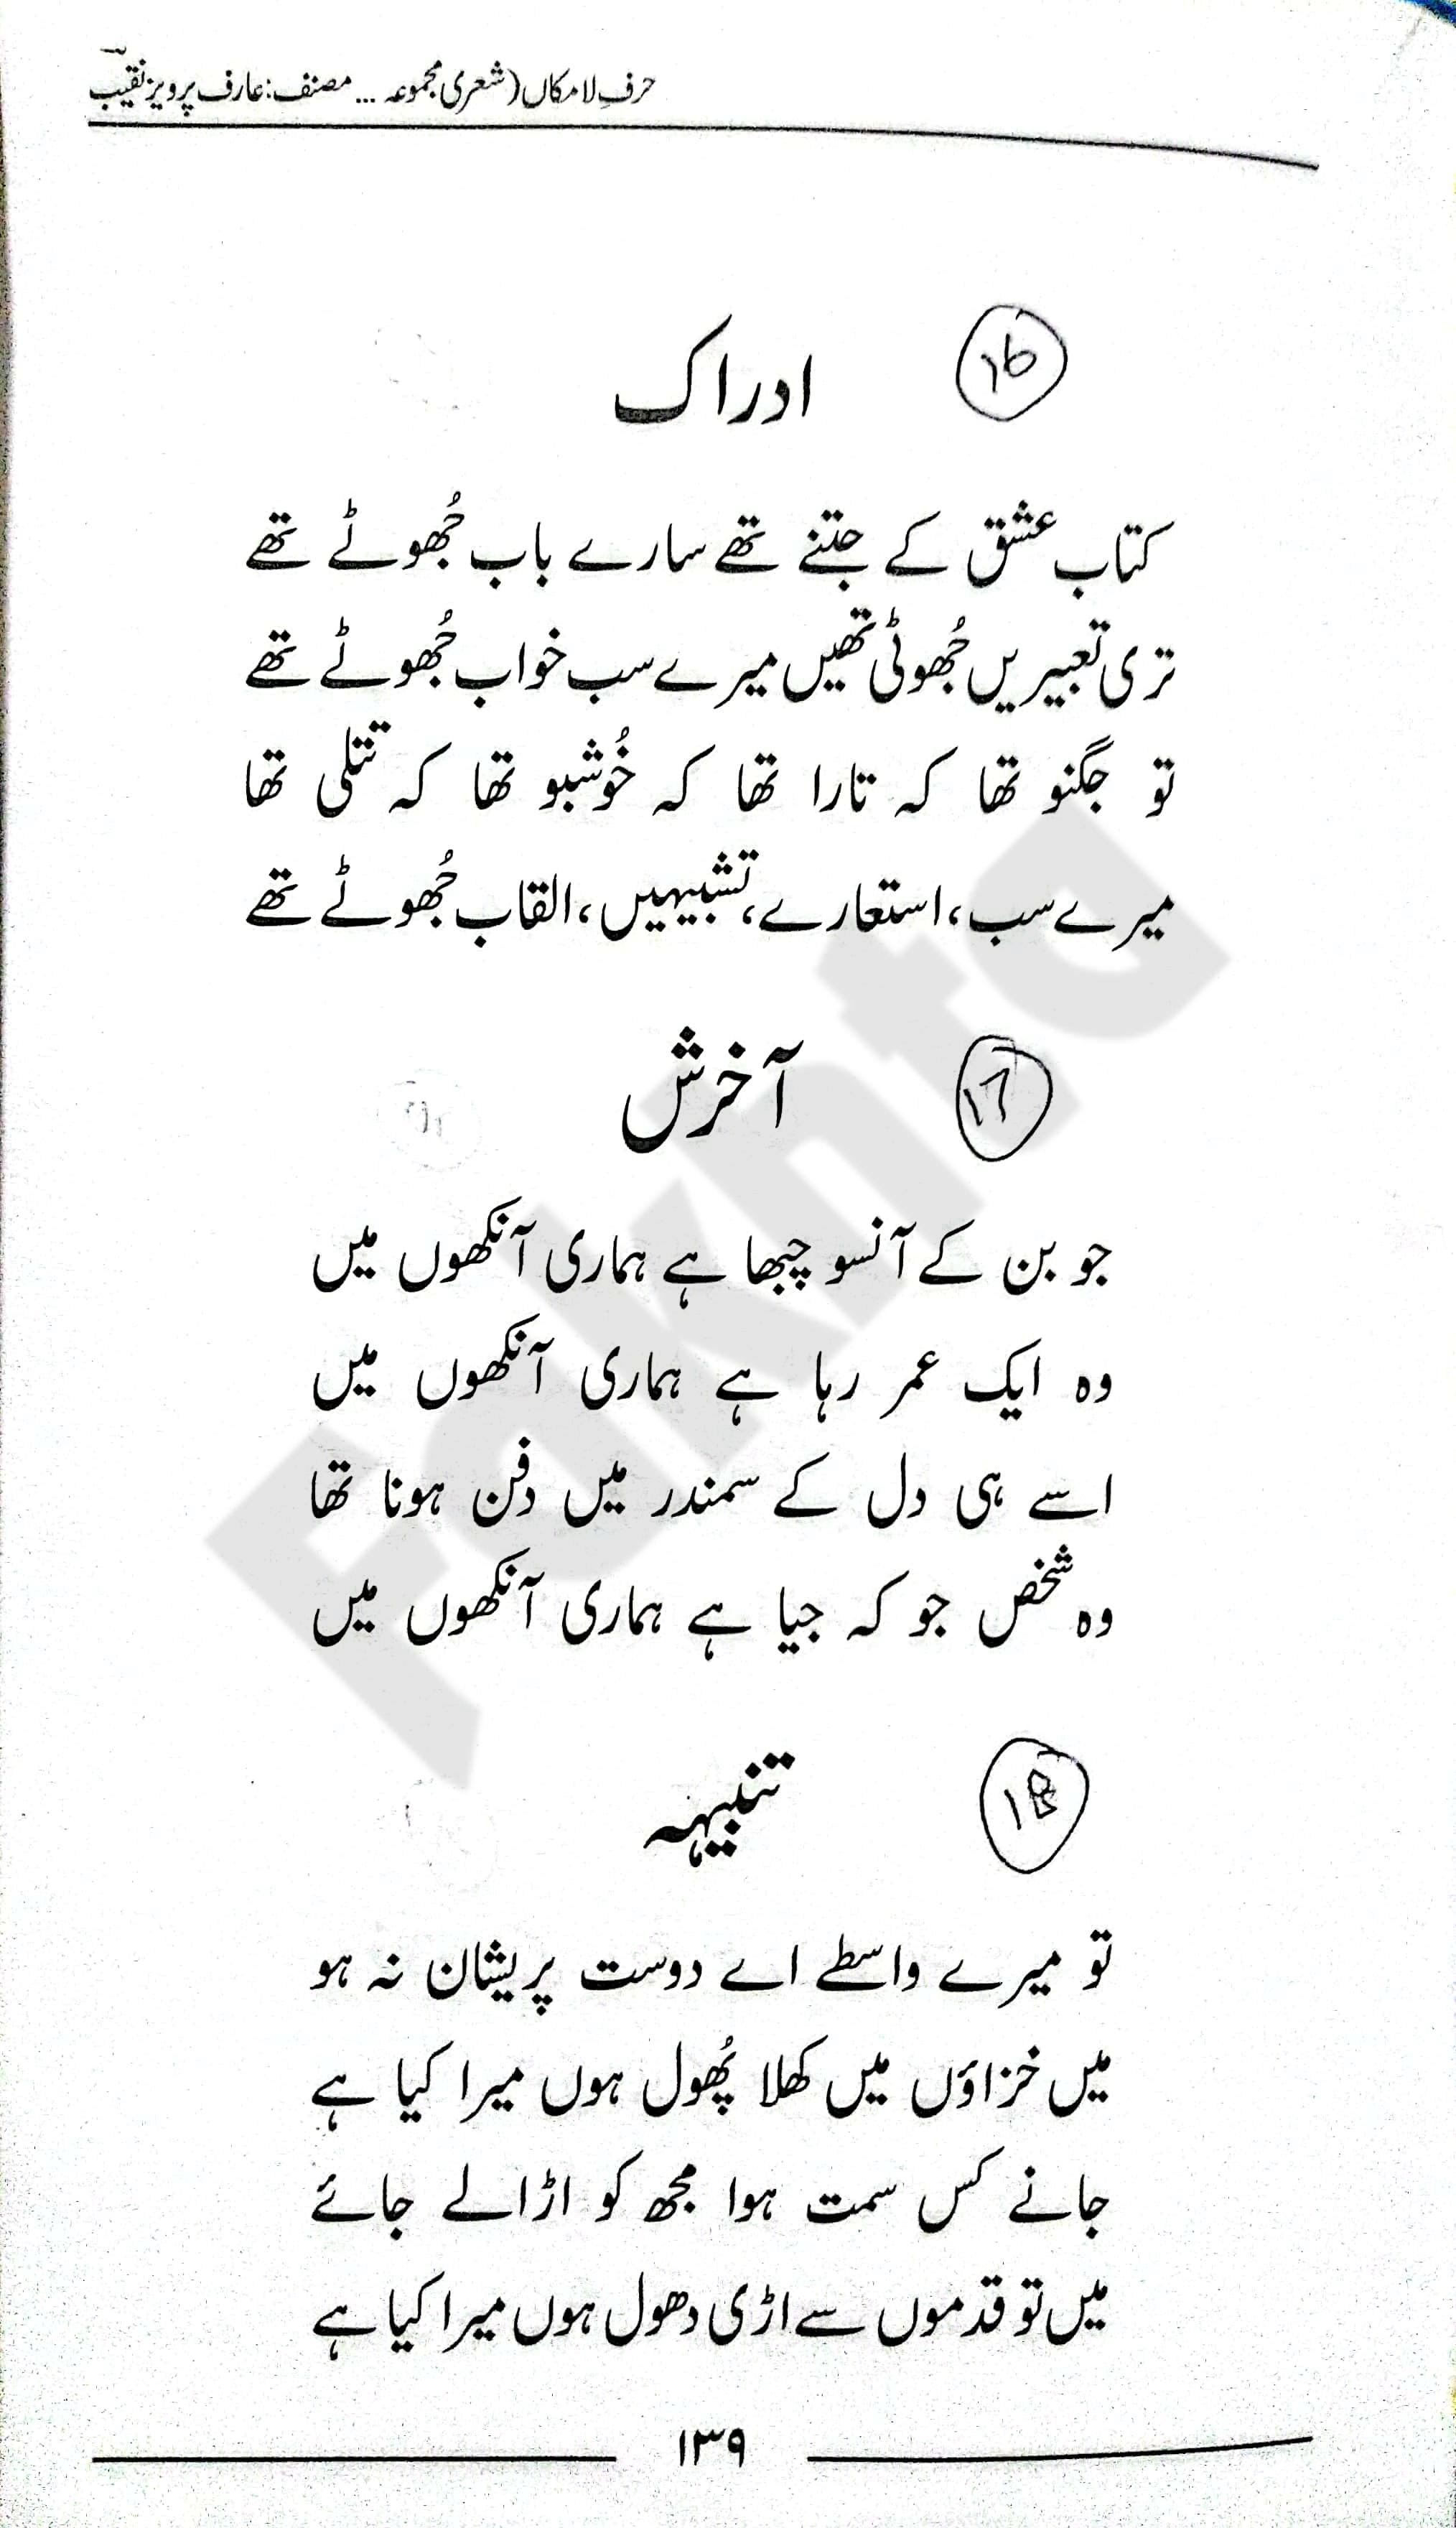 حرفِ لامکاں (شعری مجموعہ ... مصنف: عارف پرویز نقیبؔ
16
ادراک
کتاب عشق کے جتنے تھے سارے باب جُھوٹے تھے
تری تعبیریں جُھوٹی تھیں میرے سب خواب جُھوٹے تھے
تو جگنو تھا کہ تارا تھا کہ خُوشبو تھا کہ تتلی تھا
میرے سب، استعارے، تشبیہیں، القاب جُھوٹے تھے
17
آخرش
جو بن کے آنسو چبھا ہے ہماری آنکھوں میں
وہ ایک عمر رہا ہے ہماری آنکھوں میں
اسے ہی دل کے سمندر میں دفن ہونا تھا
وہ شخص جو کہ جیا ہے ہماری آنکھوں میں
18
تنبیہہ
تو میرے واسطے اے دوست پریشان نہ ہو
میں خزاؤں میں کھلا پُھول ہوں میرا کیا ہے
جانے کس سمت ہوا مجھ کو اڑا لے جائے
میں تو قدموں سے اڑی دھول ہوں میرا کیا ہے
۱۳۹
Faknta